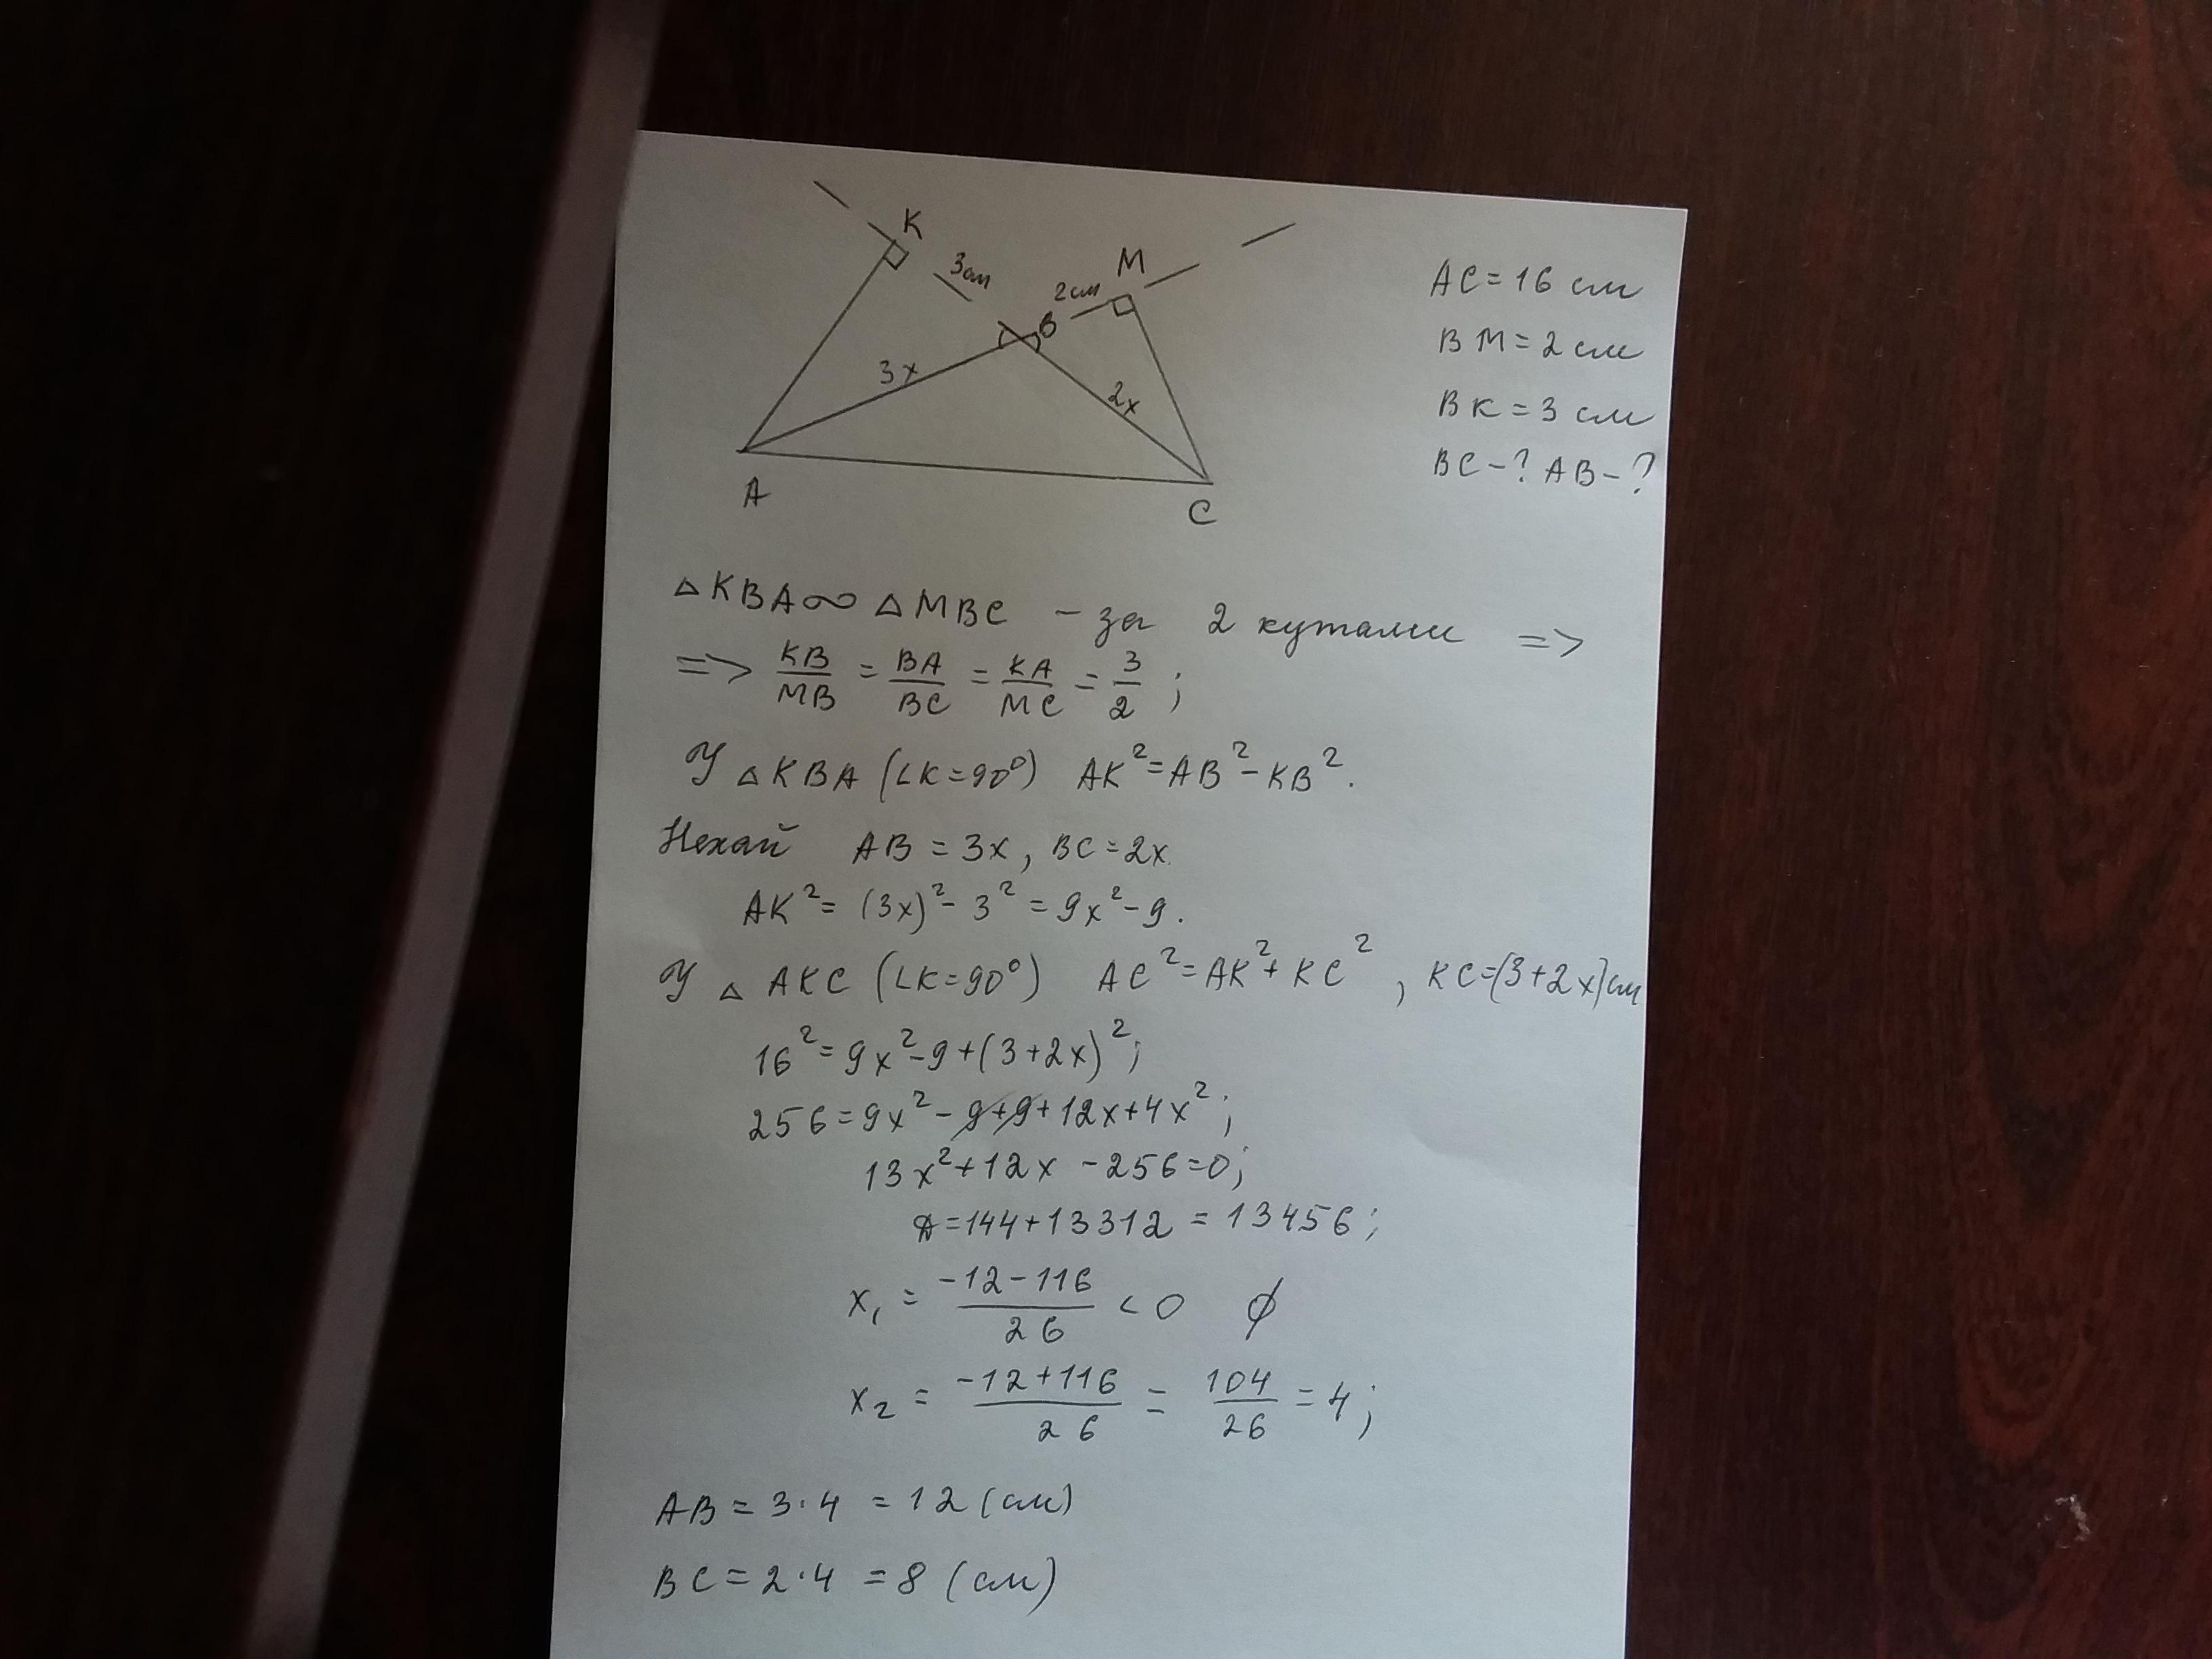 K
M
3см
2см
B
3x
2x
A
C
AC = 16 см
BM = 2 см
BK = 3 см
BC - ? AB - ?
△KBA ∾ △MBC - за 2 кутами =>
=> KB/MB = BA/BC = KA/MC = 3/2 ;
У △KBA (∠K=90°) AK² = AB² - KB².
Нехай AB = 3x, BC = 2x.
AK² = (3x)² - 3² = 9x² - 9.
У △AKC (∠K=90°) AC² = AK² + KC², KC=(3+2x)см
16² = 9x² - 9 + (3+2x)²;
256 = 9x² - 9 + 9 + 12x + 4x²;
13x² + 12x - 256 = 0;
Д = 144 + 13312 = 13456;
x₁ = (-12-116)/26 < 0 ∅
x₂ = (-12+116)/26 = 104/26 = 4;
AB = 3·4 = 12 (см)
BC = 2·4 = 8 (см)